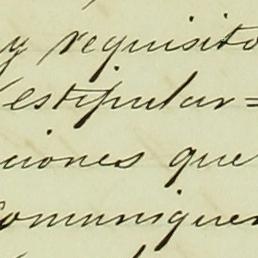 y requisito
estipular=
ciones que
comuniquen